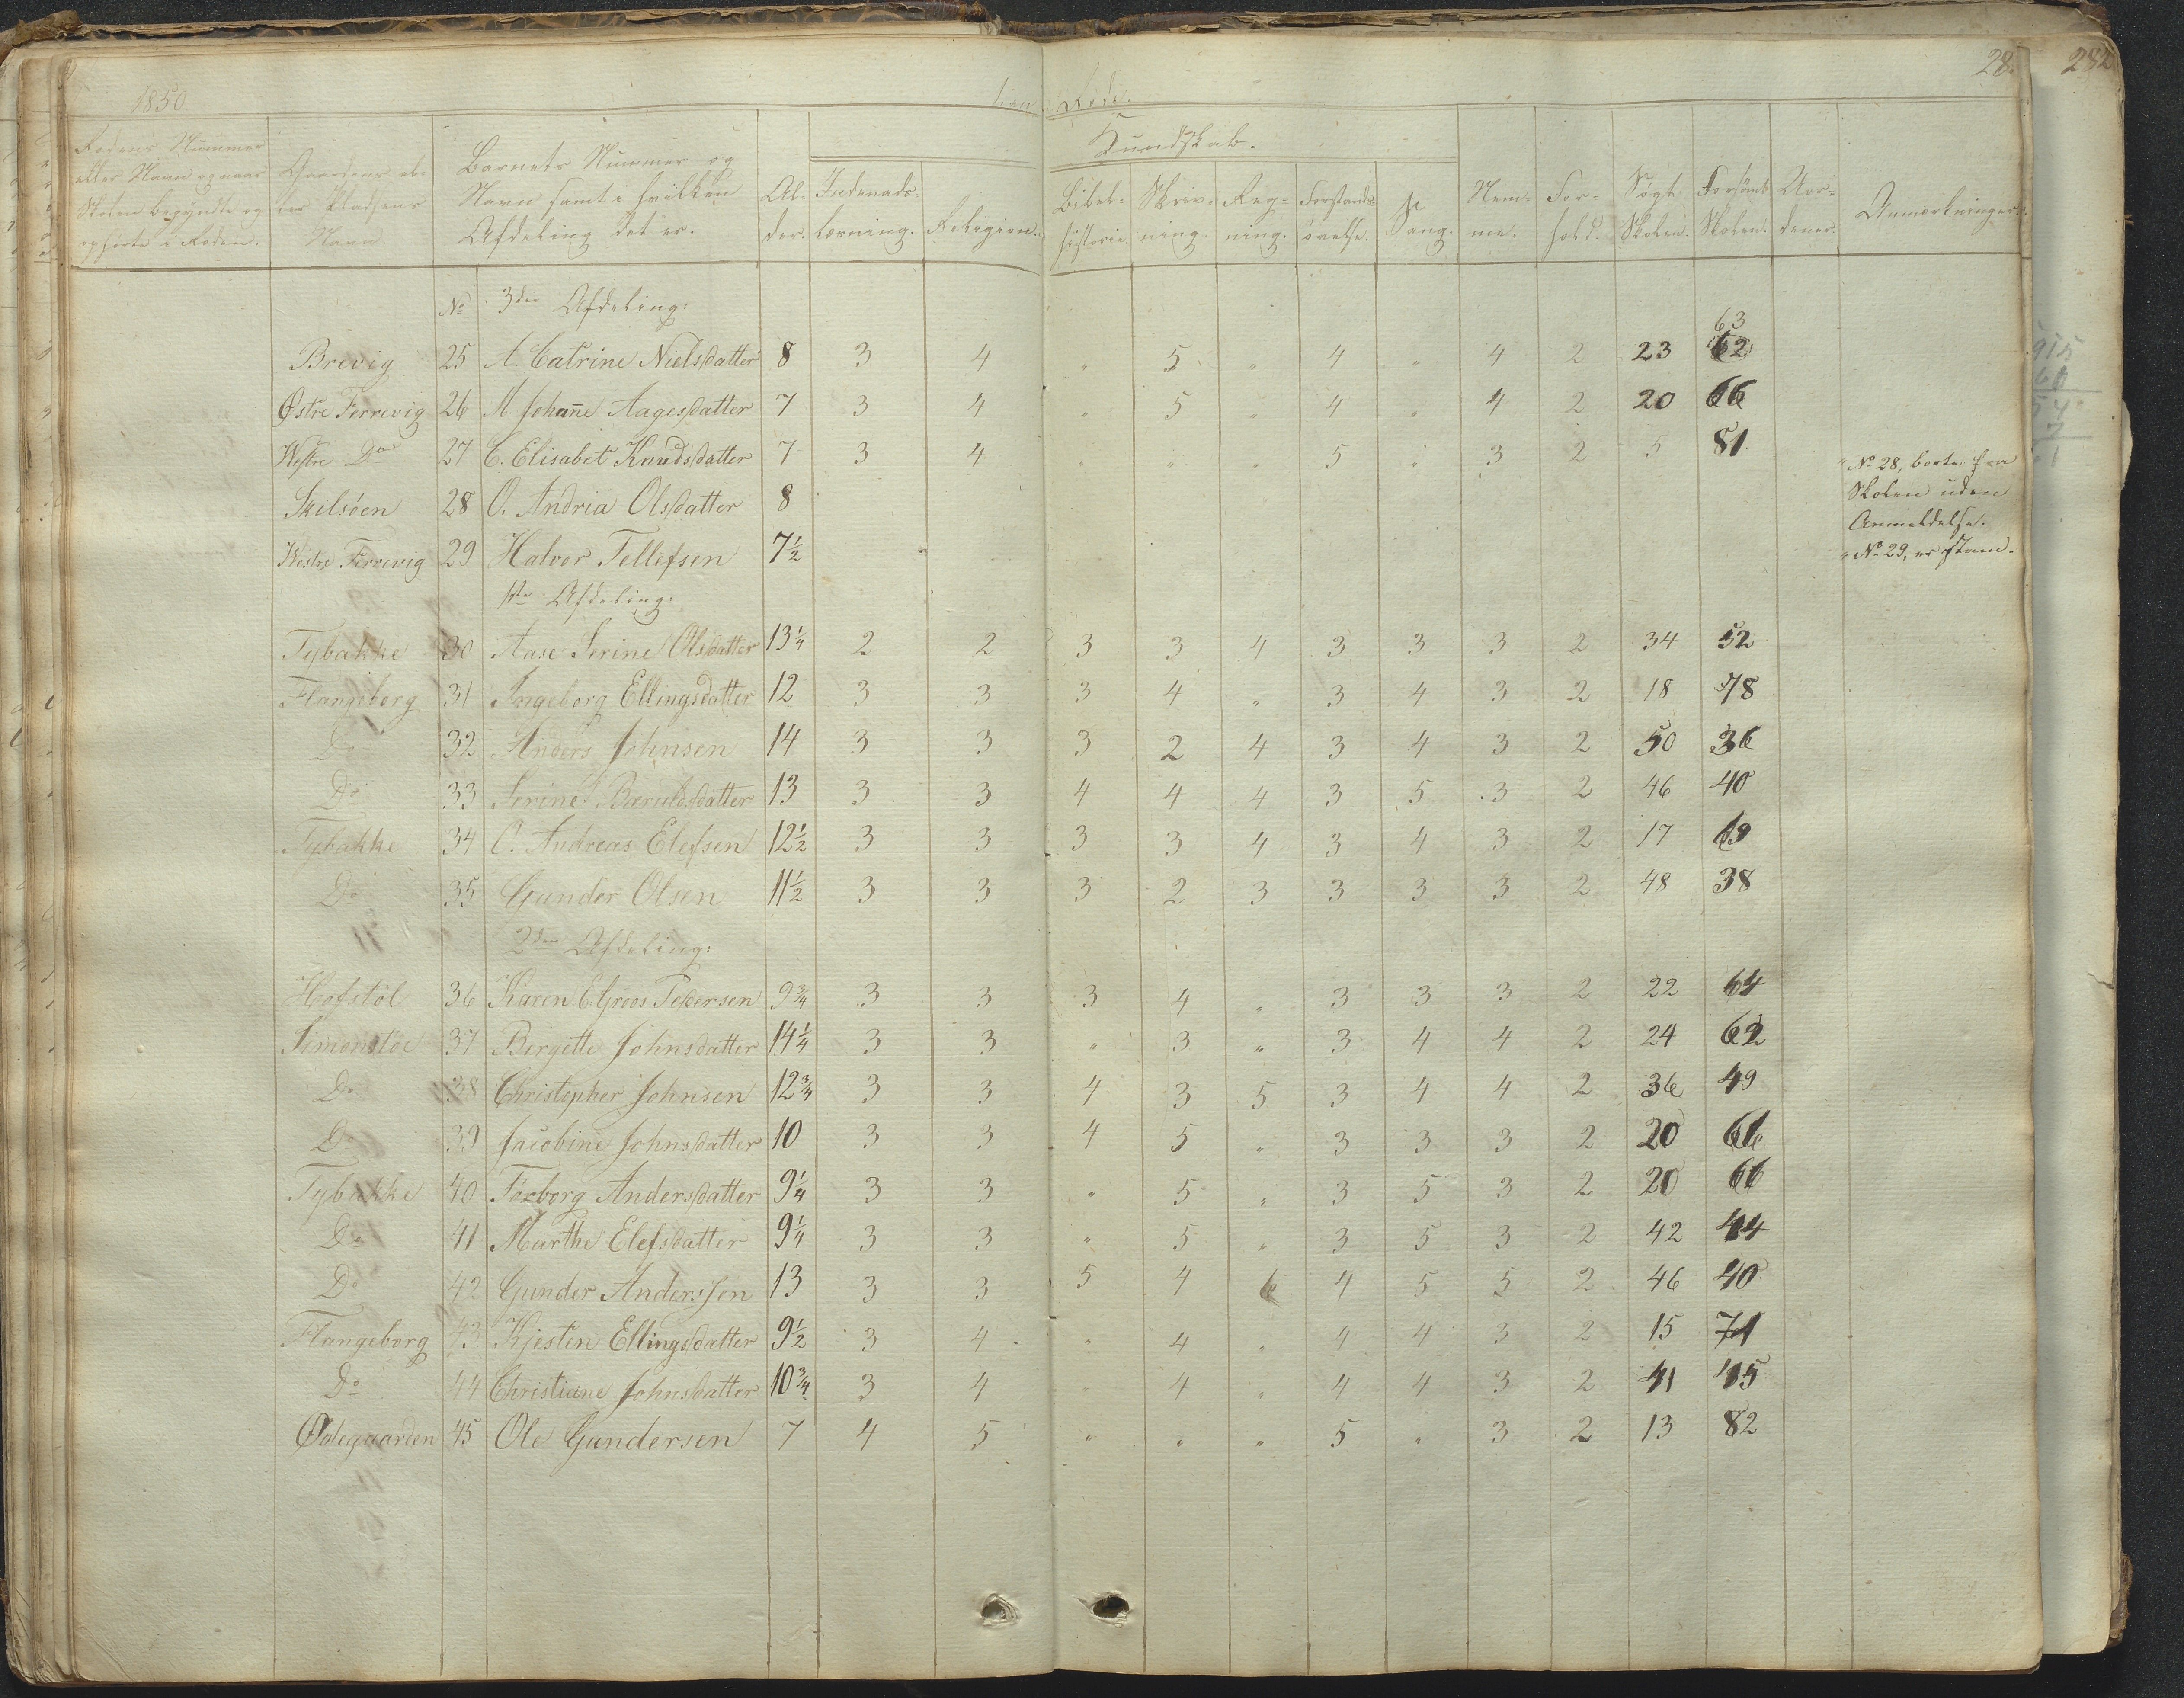 1850
28.
282
Rodens Nummer
eller Navn og naar
Skolen begyndte og
ophörte i Roden.
Gaardens el-
ler Pladsens
Navn.
Barnets Nummer og
Navn samt i hvilken
Afdeling det er.
Al-
der.
Kundskab.
Indenads-
læsning.
Religion.
Bibel-
historie
Skriv-
ning
Reg-
ning.
Forstands-
øvelse.
Sang.
Nem-
me.
For-
hold.
Søgt
Skolen.
Forsömt
Skolen.
Anmærkninger.
No 3die Afdeling:
63
Brevig 25 A Catrine Nielsdatter 8 3 4 " 5 " 4 " 4 2 23 62
Østre Ferrevig 26 M Johanne Aagesdatter 7 3 4 " 5 " 4 " 4 2 20 66
Westre Do 27 C. Elisabet Knudsdatter 7 3 4 " " " 5 " 3 2 5 81
Skilsöen 28 O. Andria Olsdatter 8
" No 28, borte fra
Skolen uden
Anmeldelse.
Westre Ferrevig 29 Halvor Tellefsen 7½
" No 29, er stam.
1ste Afdeling:
Tybakke 30 Aase Serine Olsdatter 13¼ 2 2 3 3 4 3 3 3 2 34 52
Flangeborg 31 Ingeborg Ellingsdatter 12 3 3 3 4 " 3 4 3 2 18 78
Do 32 Anders Johnsen 14 3 3 3 2 4 3 4 3 2 50 36
Do 33 Serine Bæruldsdatter 13 3 3 4 4 4 3 5 3 2 46 40
Tybakke 34 O. Andreas Elefsen 12½ 3 3 3 3 4 3 4 3 2 17 69
Do 35 Gunder Olsen 11½ 3 3 3 2 3 3 3 3 2 48 38
2den Afdeling:
Hofstöl 36 Karen C. Groos Pedersen 9¾ 3 3 3 4 " 3 3 3 2 22 64
Simonstöe 37 Bergette Johnsdatter 14¼ 3 3 " 3 " 3 4 4 2 24 62
Do 38 Christopher Johnsen 12¾ 3 3 4 3 5 3 4 4 2 36 49
Do 39 Jacobine Johnsdatter 10 3 3 4 5 " 3 3 3 2 20 66
Tybakke 40 Torborg Andersdatter 9¼ 3 3 " 5 " 3 5 3 2 20 66
Do 41 Marthe Elefsdatter 9¼ 3 3 " 5 " 3 5 3 2 42 44
Do 42 Gunder Anderssen 13 3 3 5 4 6 4 5 5 2 46 40
Flangeborg 43 Kjesten Ellingsdatter 9½ 3 4 " 4 " 4 4 3 2 15 71
Do 44 Christiane Johnsdatter 10¾ 3 4 " 4 " 4 4 3 2 41 45
Ødegaarden 45 Ole Gundersen 7 4 5 " " " 5 " 3 2 13 82